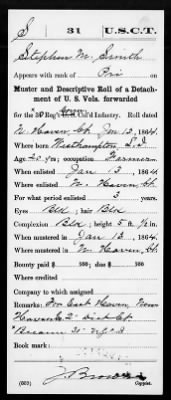 S 31 U.S.C.T.
Stephen M. Smith
Appears with rank of Pri
Muster and Descriptive Roll of a Detachment
of U. S. Vols. forwarded
for the Reg't Col'd Infantry. Roll dated
N. Haven Ct. Jan 13, 1864.
Where born Westhampton, L.I.
Age 20 y'rs; occupation Farmer
When enlisted Jan 13, 1864.
Where enlisted N. Haven, Ct.
For what period enlisted 3 years.
Eyes Blk; hair Blk
Complexion Blk; height 5 ft. ½ in.
When mustered in Jan 13, 1864.
Where mustered in N. Haven, Ct.
Bounty paid $ 100; due $ 100
Where credited
Company to which assigned
Remarks: For East Haven, New
Haven Co 2" Dist Ct
"Became 31" U.S.
J. Brown
Copyist.